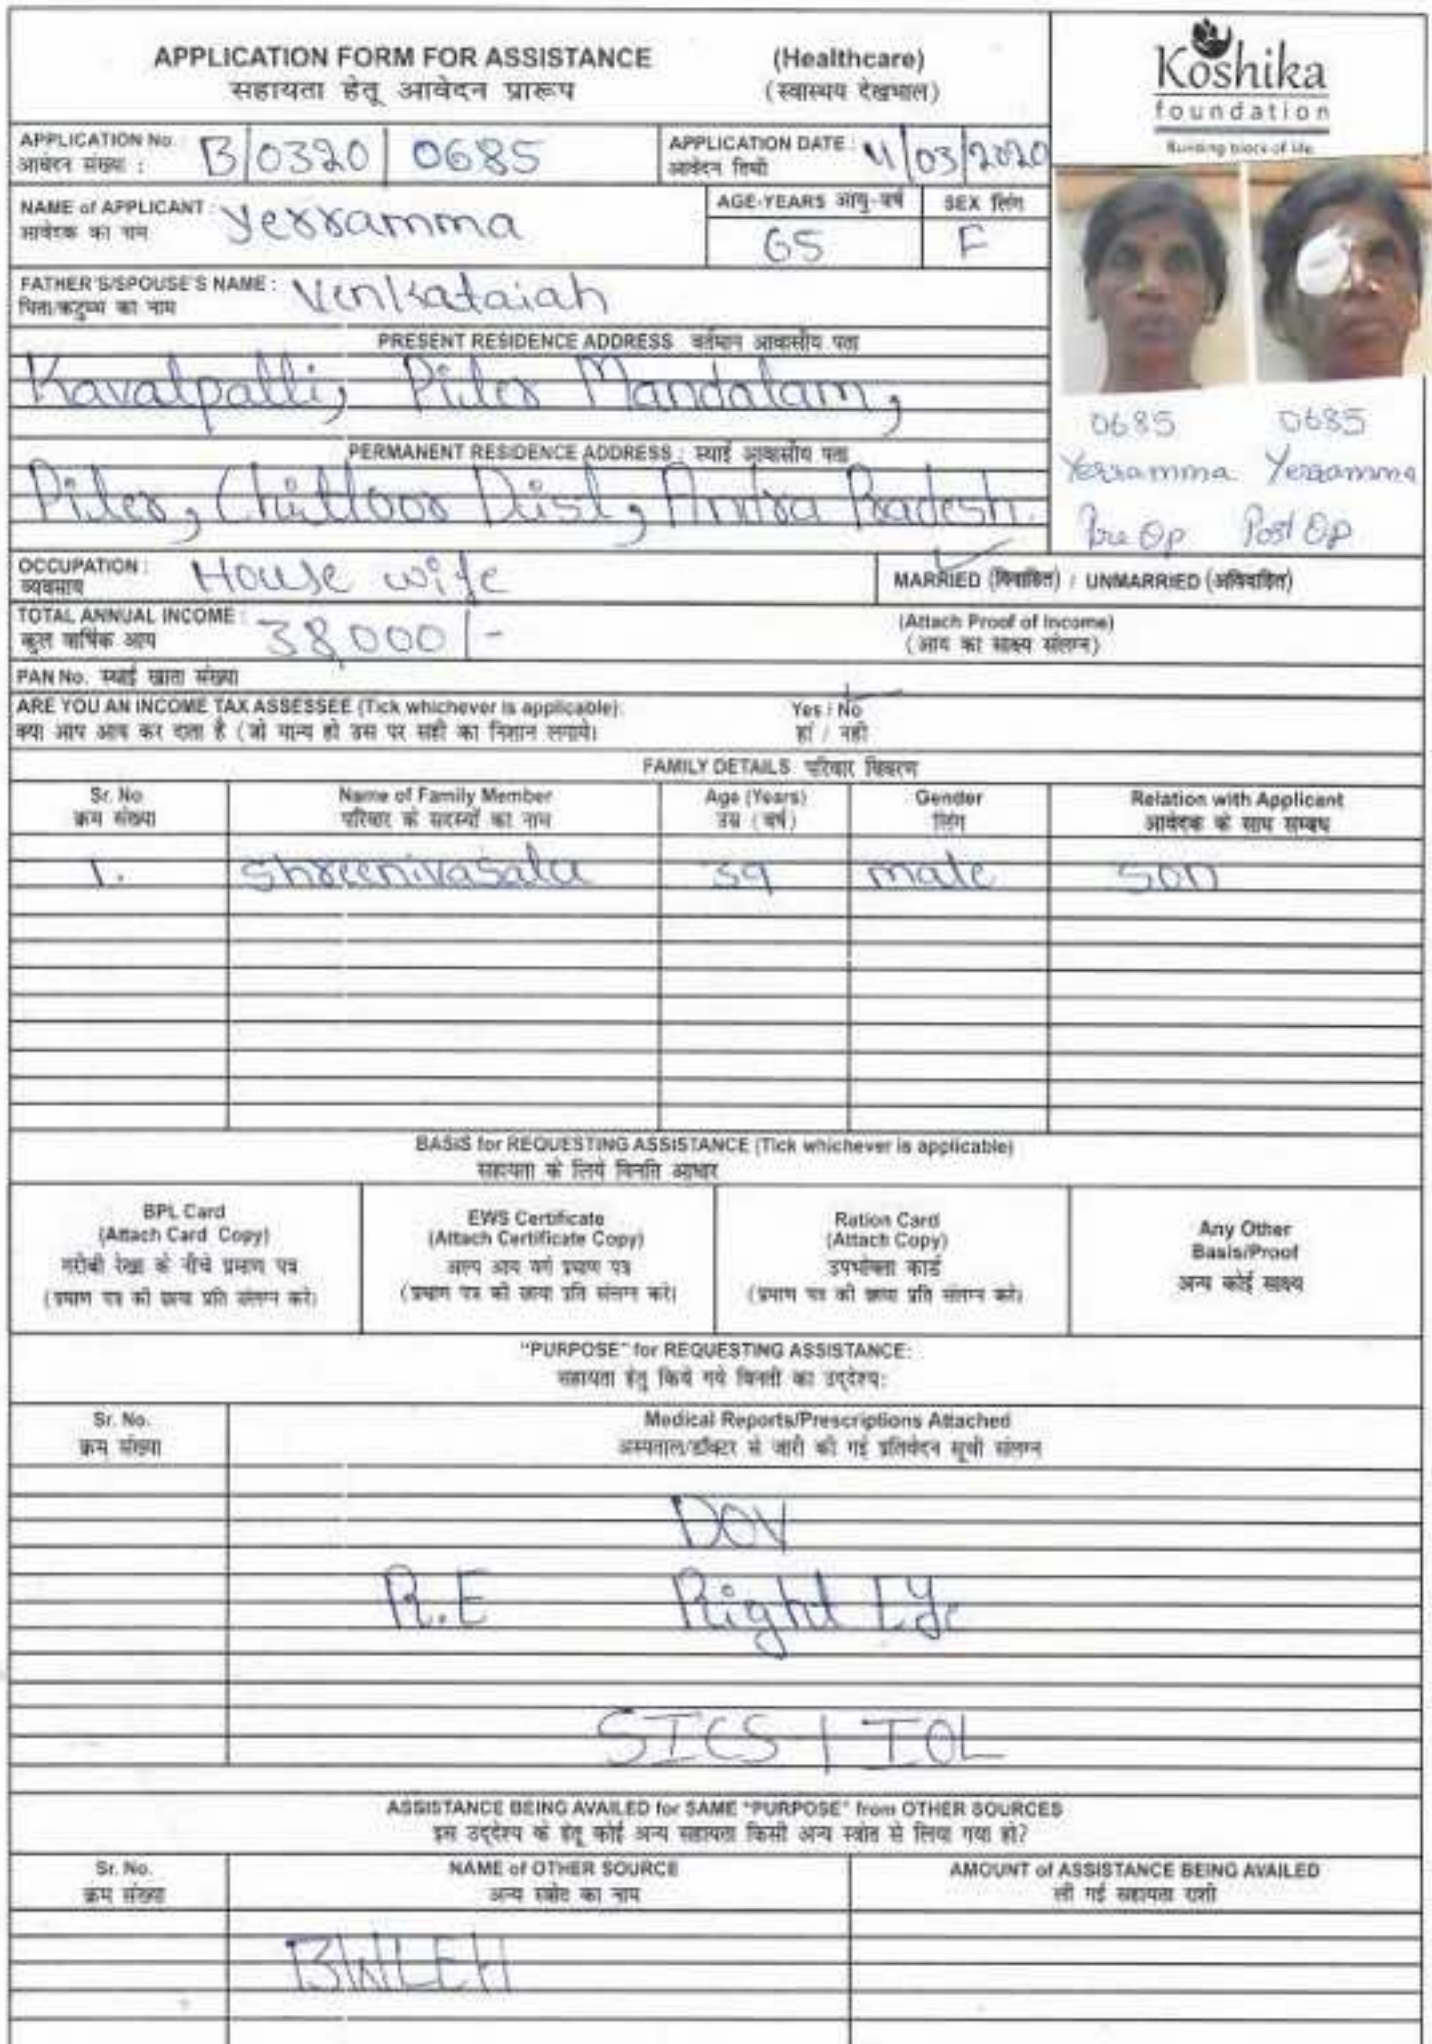 APPLICATION FORM FOR ASSISTANCE (Healthcare)
सहायता हेतू आवेदन प्रारूप (स्वास्थय देखभाल)
Koshika
foundation
Building block of life
APPLICATION No. : B/0320/0685
आवेदन संख्या :
APPLICATION DATE : 11/03/2020
आवेदन तिथी
NAME of APPLICANT : Yerramma
आवेदक का नाम
AGE-YEARS आयु-वर्ष 65
SEX लिंग F
FATHER'S/SPOUSE'S NAME : Venkataiah
पिता/कटुम्ब का नाम
PRESENT RESIDENCE ADDRESS वर्तमान आवासीय पता
Kavalpalli, Piler Mandalam,
PERMANENT RESIDENCE ADDRESS : स्थाई आवासीय पता
Piler, Chittoor Dist, Andra Pradesh.
0685 0685
Yerramma Yerramma
Pre Op Post Op
OCCUPATION : House wife
व्यवसाय
MARRIED (विवाहित) / UNMARRIED (अविवाहित)
TOTAL ANNUAL INCOME : 38,000/-
कुल वार्षिक आय
(Attach Proof of Income)
(आय का साक्ष्य संलग्न)
PAN No. स्थाई खाता संख्या
ARE YOU AN INCOME TAX ASSESSEE (Tick whichever is applicable): Yes / No
क्या आप आय कर दाता है (जो मान्य हो उस पर सही का निशान लगाये। हां / नही
FAMILY DETAILS परिवार विवरण
Sr. No Name of Family Member Age (Years) Gender Relation with Applicant
क्रम संख्या परिवार के सदस्यों का नाम उम्र (वर्ष) लिंग आवेदक के साथ सम्बध
1. Shreenivasalu 39 male son
BASIS for REQUESTING ASSISTANCE (Tick whichever is applicable)
सहायता के लिये विनति आधार
BPL Card
(Attach Card Copy)
गरीबी रेखा के नीचे प्रमाण पत्र
(प्रमाण पत्र की छाया प्रति संलग्न करे।
EWS Certificate
(Attach Certificate Copy)
अल्प आय वर्ग प्रमाण पत्र
(प्रमाण पत्र की छाया प्रति संलग्न करे।
Ration Card
(Attach Copy)
उपभोक्ता कार्ड
(प्रमाण पत्र की छाया प्रति संलग्न करे।
Any Other
Basis/Proof
अन्य कोई साक्ष्य
"PURPOSE" for REQUESTING ASSISTANCE:
सहायता हेतु किये गये विनती का उद्देश्य:
Sr. No. Medical Reports/Prescriptions Attached
क्रम संख्या अस्पताल/डॉक्टर से जारी की गई प्रतिवेदन सूची संलग्न
DOV
R.E Right Eye
SICS / IOL
ASSISTANCE BEING AVAILED for SAME "PURPOSE" from OTHER SOURCES
इस उद्देश्य के हेतू कोई अन्य सहायता किसी अन्य स्त्रोत से लिया गया हो?
Sr. No. NAME of OTHER SOURCE AMOUNT of ASSISTANCE BEING AVAILED
क्रम संख्या अन्य स्त्रोत का नाम ली गई सहायता राशी
BWLEH